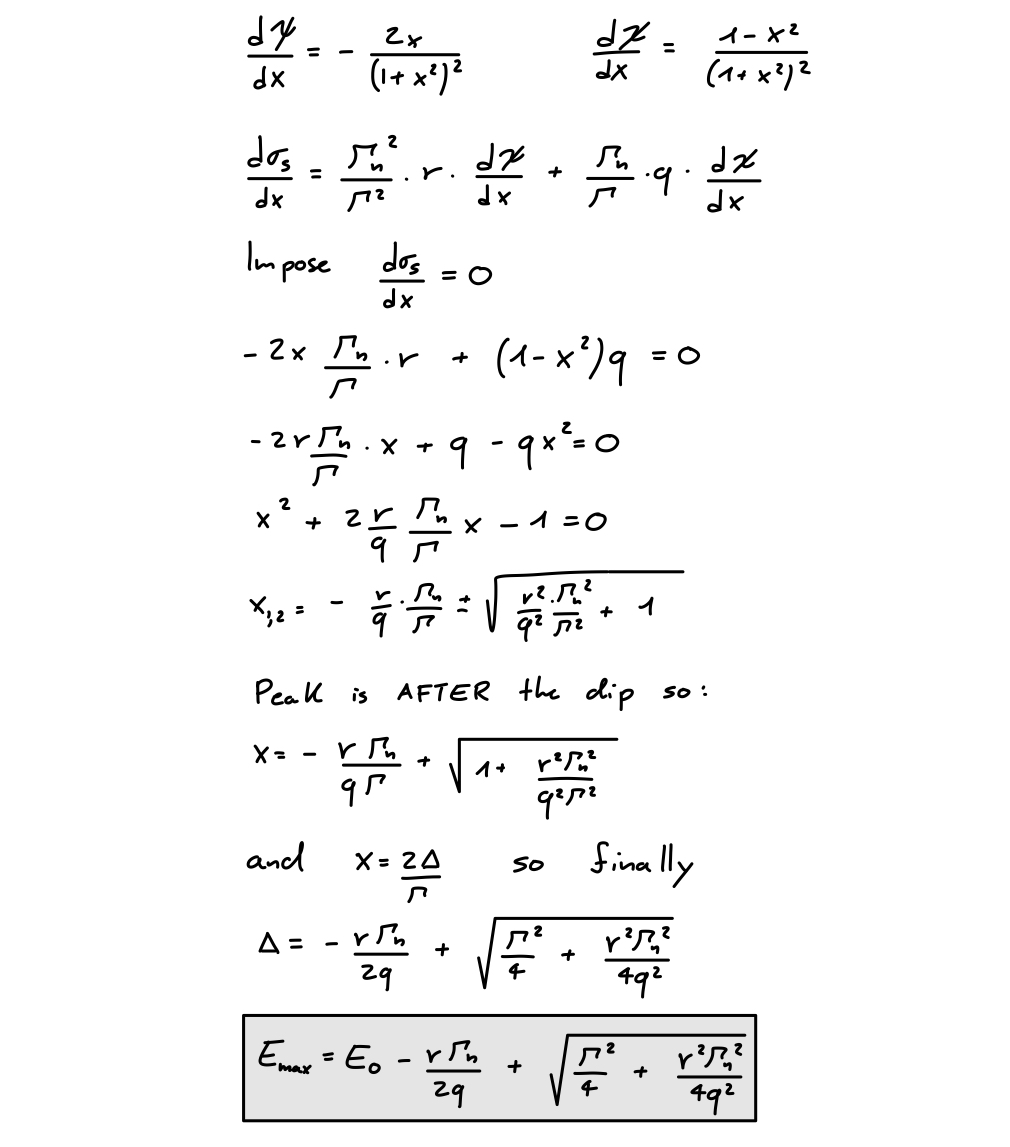 dψ/dx = - 2x/(1+x²)² dχ/dx = 1-x²/(1+x²)²
dσₛ/dx = Γₙ²/Γ² · r · dχ/dx + Γₙ/Γ · q · dχ/dx
Impose dσₛ/dx = 0
- 2x Γₙ/Γ · r + (1-x²)q = 0
- 2r Γₙ/Γ · x + q - qx² = 0
x² + 2 r/q Γₙ/Γ x - 1 = 0
x₁,₂ = - r/q · Γₙ/Γ ± √(r²/q² · Γₙ²/Γ² + 1)
Peak is AFTER the dip so:
x = - rΓₙ/qΓ + √(1 + r²Γₙ²/q²Γ²)
and x = 2Δ/Γ so finally
Δ = - rΓₙ/2q + √(Γ²/4 + r²Γₙ²/4q²)
Eₘₐₓ = E₀ - rΓₙ/2q + √(Γ²/4 + r²Γₙ²/4q²)